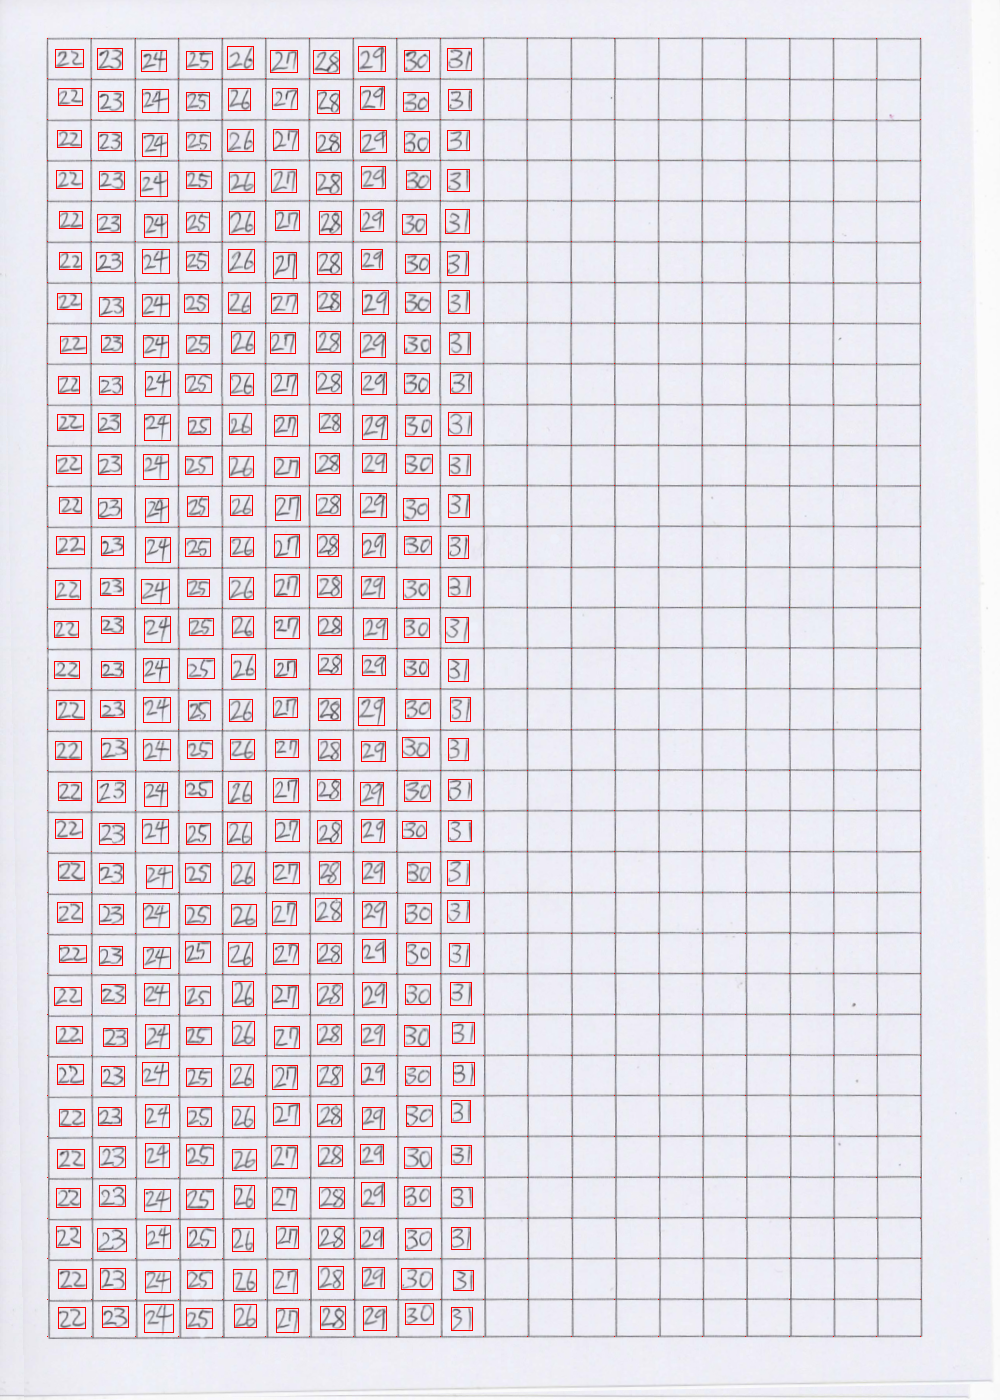 22 23 24 25 26 27 28 29 30 31
22 23 24 25 26 27 28 29 30 31
22 23 24 25 26 27 28 29 30 31
22 23 24 25 26 27 28 29 30 31
22 23 24 25 26 27 28 29 30 31
22 23 24 25 26 27 28 29 30 31
22 23 24 25 26 27 28 29 30 31
22 23 24 25 26 27 28 29 30 31
22 23 24 25 26 27 28 29 30 31
22 23 24 25 26 27 28 29 30 31
22 23 24 25 26 27 28 29 30 31
22 23 24 25 26 27 28 29 30 31
22 23 24 25 26 27 28 29 30 31
22 23 24 25 26 27 28 29 30 31
22 23 24 25 26 27 28 29 30 31
22 23 24 25 26 27 28 29 30 31
22 23 24 25 26 27 28 29 30 31
22 23 24 25 26 27 28 29 30 31
22 23 24 25 26 27 28 29 30 31
22 23 24 25 26 27 28 29 30 31
22 23 24 25 26 27 28 29 30 31
22 23 24 25 26 27 28 29 30 31
22 23 24 25 26 27 28 29 30 31
22 23 24 25 26 27 28 29 30 31
22 23 24 25 26 27 28 29 30 31
22 23 24 25 26 27 28 29 30 31
22 23 24 25 26 27 28 29 30 31
22 23 24 25 26 27 28 29 30 31
22 23 24 25 26 27 28 29 30 31
22 23 24 25 26 27 28 29 30 31
22 23 24 25 26 27 28 29 30 31
22 23 24 25 26 27 28 29 30 31